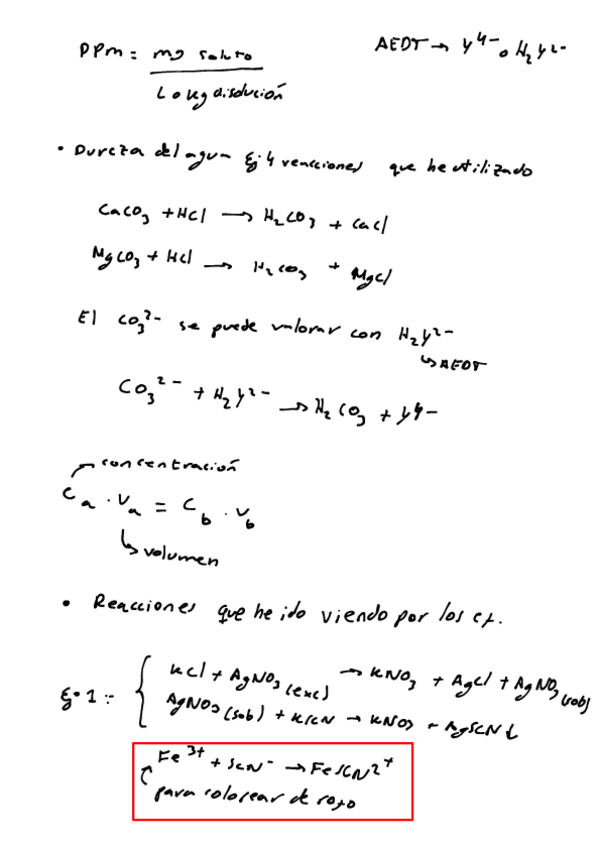 PPm = mg soluto
L o kg disolución
AEDT → y⁴⁻ o H₂y²⁻
• Dureza del agua Ej. 4 reacciones que he utilizado
CaCO₃ + HCl → H₂CO₃ + CaCl
MgCO₃ + HCl → H₂CO₃ + MgCl
El CO₃²⁻ se puede valorar con H₂y²⁻
↳ AEDT
CO₃²⁻ + H₂y²⁻ → H₂CO₃ + y⁴⁻
concentración
Ca · Va = Cb · Vb
↳ volumen
• Reacciones que he ido viendo por los ej.
Ej. 1 :- { KCl + AgNO₃ (exc) → KNO₃ + AgCl + AgNO₃ (sob)
AgNO₃ (sob) + KSCN → KNO₃ + AgSCN ↓
Fe³⁺ + SCN⁻ → FeSCN²⁺
para colorear de rojo